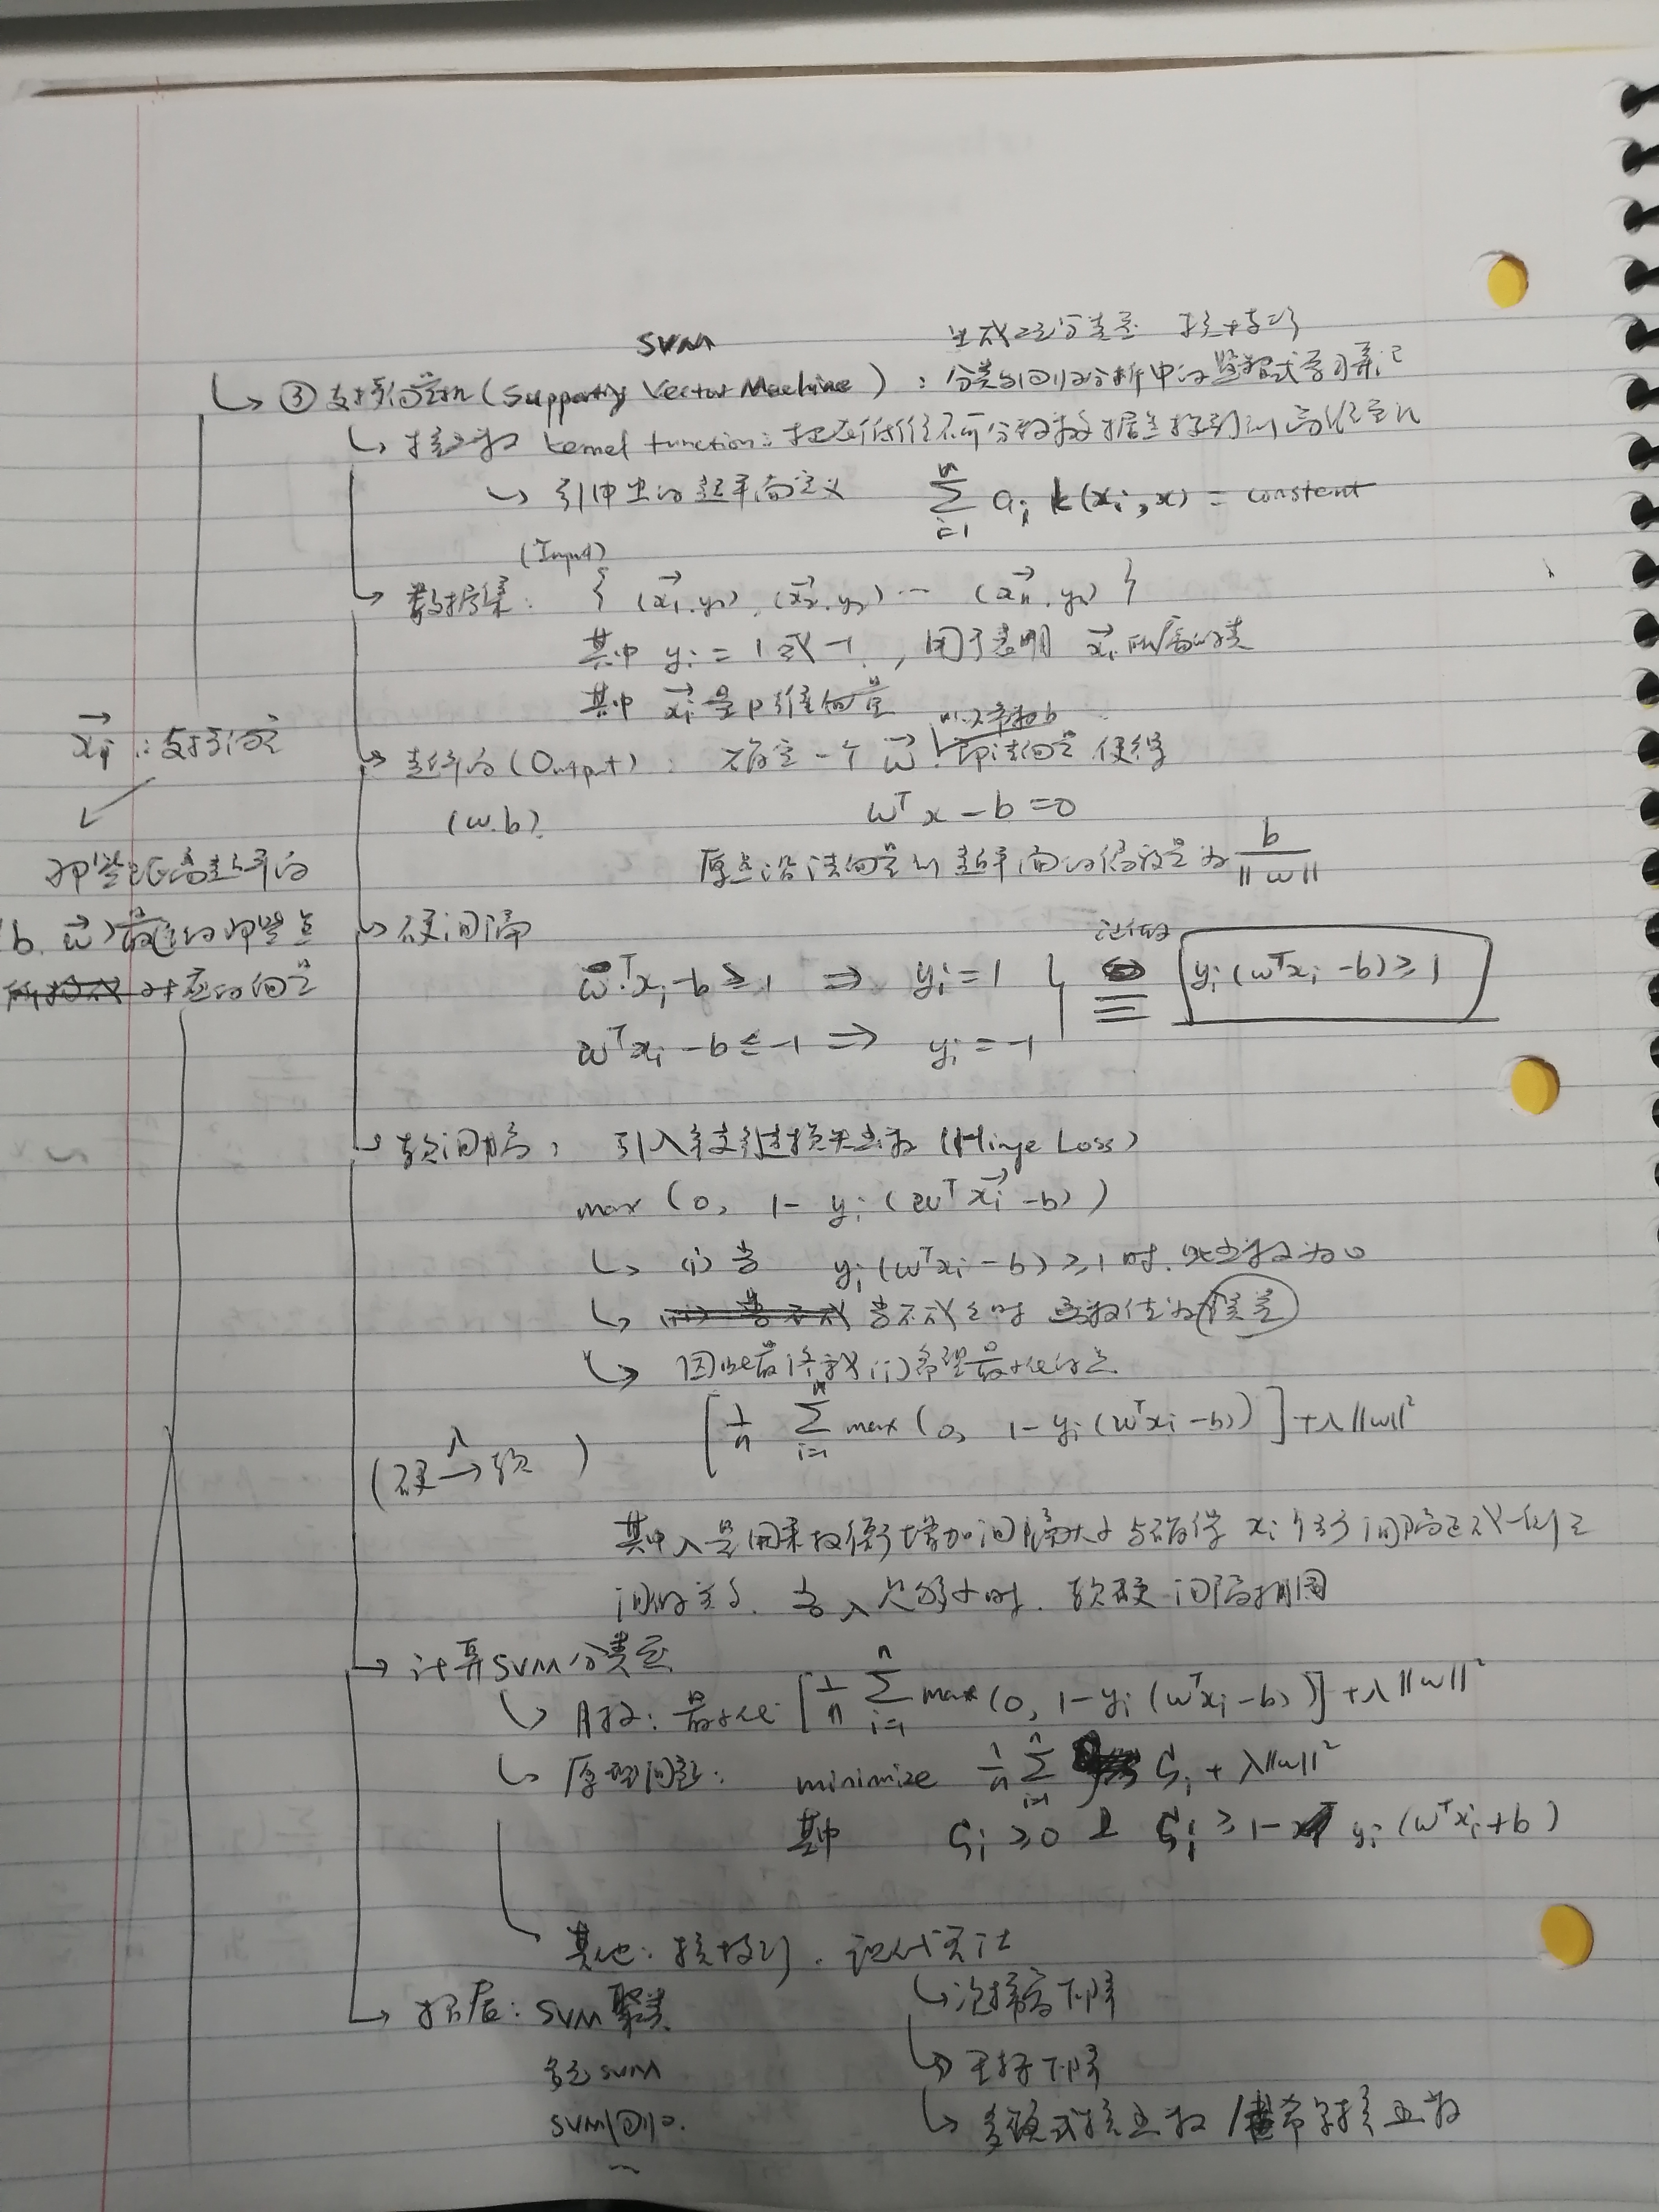 SVM 生成二元分类器 核技巧
↳ ③ 支持向量机 (Supporting Vector Machine) : 分类与回归分析中的监督式学习算法
↳ 核函数 kernel function: 把在低维不可分的数据点投到高维空间
↳ 引申出的超平面定义 $\sum_{i=1}^{n} a_i k(x_i, x) = constant$
(Input)
↳ 数据集: { (x₁⃗, y₁), (x₂⃗, y₂) ... (xₙ⃗, yₙ) }
其中 yᵢ = 1 或 -1, 用于表明 xᵢ⃗ 所属的类
其中 xᵢ⃗ 是 p 维向量
以及参数 b
↳ (Output) : 确定一个 w⃗ 即法向量 使得
(w.b) wᵀx - b = 0
原点沿法向量到超平面的偏移量为 b/‖w‖
xᵢ⃗ : 支持向量
那些距离超平面
(b. w⃗) 最近的那些点
对应的向量
↳ 硬间隔
w⃗ᵀxᵢ - b ≥ 1 ⇒ yᵢ = 1
wᵀxᵢ - b ≤ -1 ⇒ yᵢ = -1
≡ yᵢ(wᵀxᵢ - b) ≥ 1
↳ 软间隔: 引入铰链损失函数 (Hinge Loss)
max (0, 1 - yᵢ (wᵀxᵢ⃗ - b))
↳ (i) 当 yᵢ(wᵀxᵢ - b) ≥ 1 时. 此函数为 0
↳ 当不成立时 函数值为误差
↳ 因此最终我们希望最小化的是
[1/n Σᵢ₌₁ⁿ max (0, 1 - yᵢ(wᵀxᵢ - b))] + λ‖w‖²
(硬 →λ 软)
其中 λ 是用来权衡增加间隔大小与确保 xᵢ 位于间隔正确一侧之
间的关系. 当 λ 足够小时. 软硬间隔相同
↳ 计算SVM分类器
↳ 目标: 最小化 [1/n Σᵢ₌₁ⁿ max (0, 1 - yᵢ(wᵀxᵢ - b))] + λ‖w‖²
↳ 原型问题: minimize 1/n Σᵢ₌₁ⁿ ζᵢ + λ‖w‖²
其中 ζᵢ ≥ 0 且 ζᵢ ≥ 1 - yᵢ(wᵀxᵢ + b)
其他: 核技巧. 现代算法
↳ 次梯度下降
↳ 拓展: SVM 聚类
↳ 坐标下降
多元 SVM
↳ 多项式核函数 / 高斯核函数
SVM 回归.